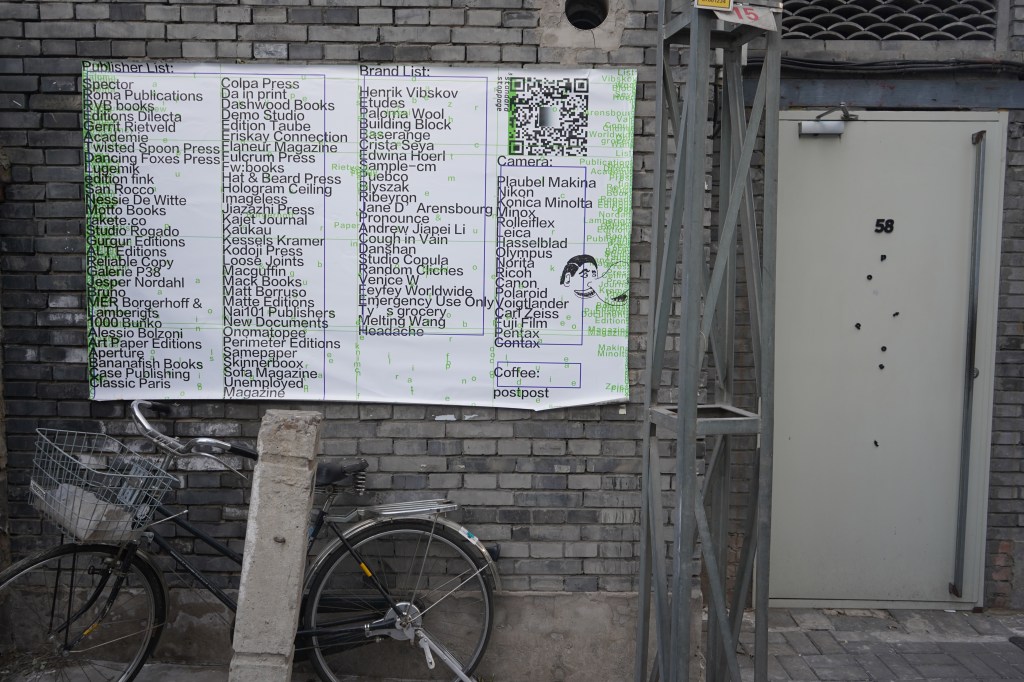 Publisher List:
Spector
Roma Publications
RVB books
Editions Dilecta
Gerrit Rietveld
Academie
Twisted Spoon Press
Dancing Foxes Press
Lugemik
edition fink
San Rocco
Nessie De Witte
Motto Books
rakete.co
Studio Rogado
Gurgur Editions
ALT Editions
Reliable Copy
Galerie P38
Jesper Nordahl
Bruno
MER Borgerhoff &
Lamberigts
1000 Bunko
Alessio Bolzoni
Art Paper Editions
Aperture
Bananafish Books
Case Publishing
Classic Paris
Colpa Press
Da in print
Dashwood Books
Demo Studio
Edition Taube
Eriskay Connection
Flaneur Magazine
Fulcrum Press
Fw:books
Hat & Beard Press
Hologram Ceiling
Imageless
Jiazazhi Press
Kajet Journal
Kaukau
Kessels Kramer
Kodoji Press
Loose Joints
Macguffin
Mack Books
Matt Borruso
Matte Editions
Nai101 Publishers
New Documents
Onomatopee
Perimeter Editions
Samepaper
Skinnerboox
Sofa Magazine
Unemployed
Magazine
Brand List:
Henrik Vibskov
Etudes
Paloma Wool
Building Block
Baserange
Crista Seya
Edwina Hoerl
Sample-cm
Bebco
Blyszak
Ribeyron
Jane D' Arensbourg
Pronounce
Andrew Jiapei Li
Cough in Vain
Danshan
Studio Copula
Random Clichés
Venice W
Feyfey Worldwide
Emergency Use Only
Ty's grocery
Melting Wang
Headache
Camera:
Plaubel Makina
Nikon
Konica Minolta
Minox
Rolleiflex
Leica
Hasselblad
Olympus
Norita
Ricoh
Canon
Polaroid
Voigtlander
Carl Zeiss
Fuji Film
Pentax
Contax
Coffee:
postpost
15
58